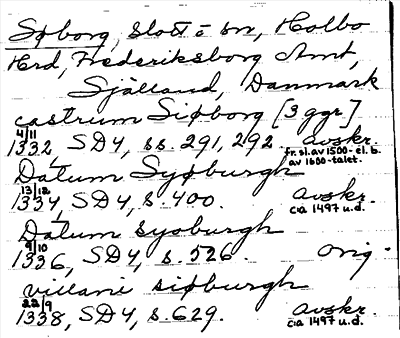 Søborg, slott o sn, Holbo
Hrd, Frederiksborg Amt,
Sjælland, Danmark
castrum Siøborg [3 ggr]
4/11
1332, SD4, ss. 291, 292. avskr.
fr. sl. av 1500- el. b.
av 1600-talet.
Datum Syøburgh
13/12
1334, SD4, s. 400. avskr.
cia 1497 u.d.
Datum syoburgh
9/10
1336, SD4, s. 526. orig.
villani siøburgh
22/9
1338, SD4, s. 629. avskr.
cia 1497 u.d.